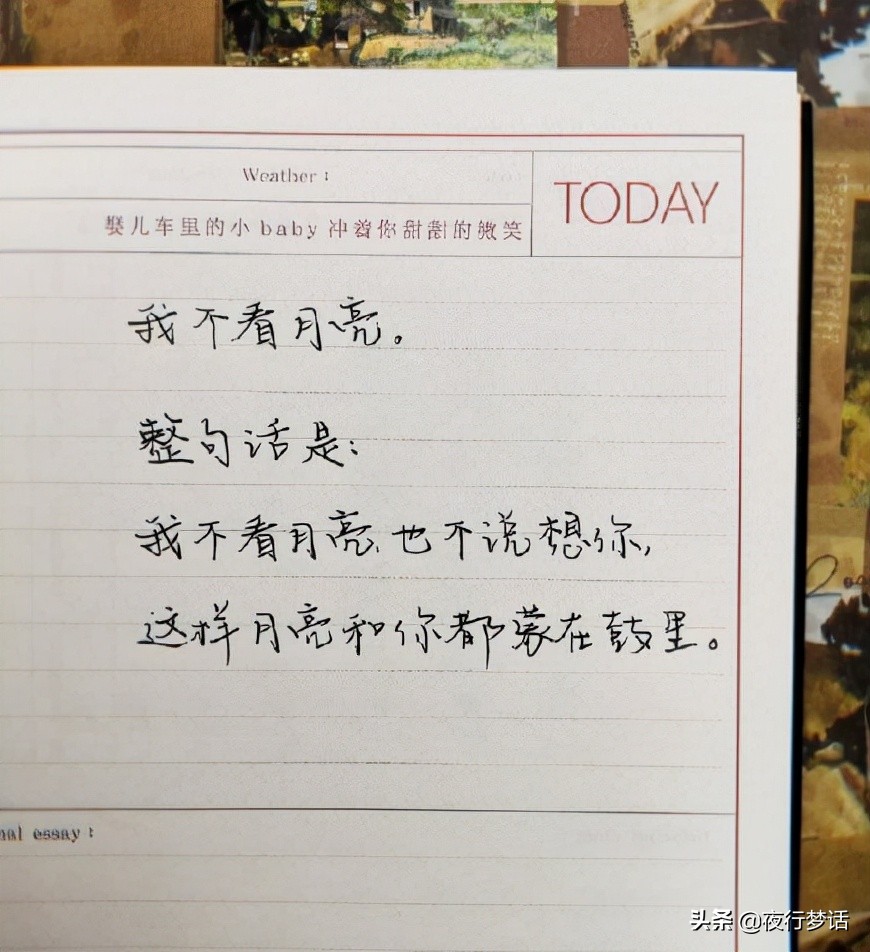 Weather :
TODAY
婴儿车里的小baby冲着你甜甜的微笑
我不看月亮。
整句话是：
我不看月亮，也不说想你，
这样月亮和你都蒙在鼓里。
nal essay :
头条 @夜行梦话